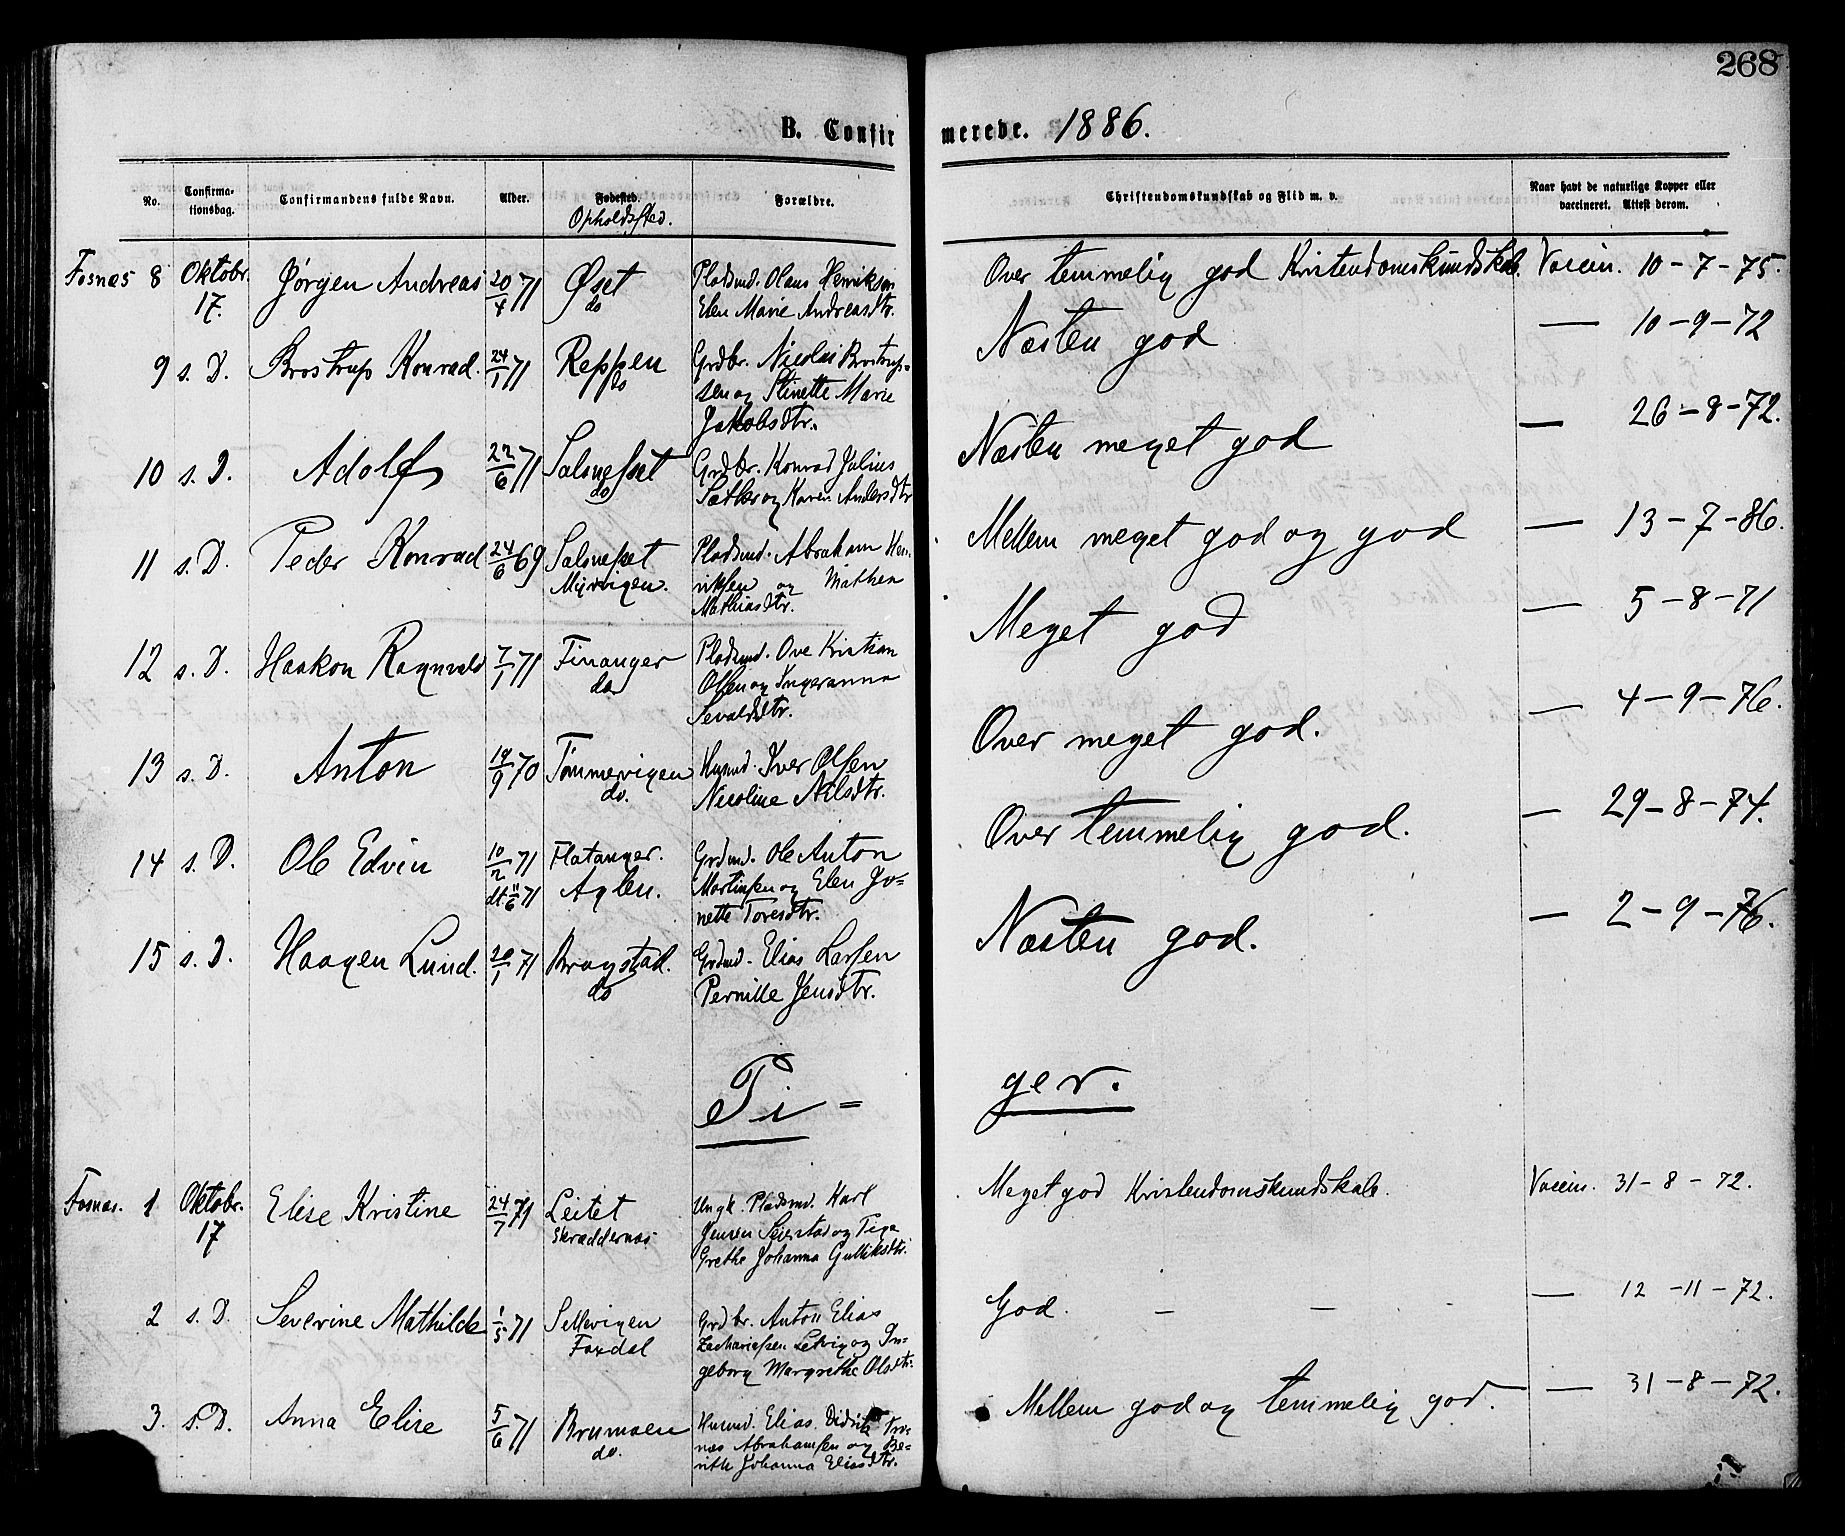 268
B. Confirmerede. 1886.
No.
Confirma-
tionsdag.
Confirmandens fulde Navn.
Alder.
Fødested.
Opholdssted.
Forældre.
Christendomskundskab og Flid m. v.
Naar havt de naturlige Kopper eller
vaccineret. Attest derom.
Fosnæs 8 Oktobr. 17. Jørgen Andreas 20/4 71 Øset do
Pladsmd. Olaus Henriksen
Elen Marie Andreasdtr.
Over temmelig god Kristendomskundskab. Vaccin. 10-7-75.
9 s. D. Brostrup Konrad. 24/1 71 Reppen do
Grdbr. Nicolai Brostrup-
sen og Stinette Marie
Jakobsdtr.
Næsten god — 10-9-72
10 s. D. Adolf 22/6 71 Salsnesset do
Grdbr. Konrad Julius
Sæther og Karen Andersdtr
Næsten meget god — 26-8-72.
11 s. D. Peder Konrad 24/6 69 Salsnesset Myrvigen.
Pladsmd. Abraham Hen-
riksen og Mathea
Mathiasdtr.
Mellem meget god og god — 13-7-86.
12 s. D. Haakon Ragnvald 7/1 71 Finanger do
Pladsmd. Ove Kristian
Olsen og Ingeranna
Sevaldsdtr.
Meget god — 5-8-71
13 s. D. Anton 19/9 70 Tømmervigen do.
Husmd. Iver Olsen
Nicoline Nilsdtr.
Over meget god. — 4-9-76.
14 s. D. Ole Edvin 10/2 71 dt. 11/6 71 Flatanger. Aglen.
Grdmd. Ole Anton
Martinsen og Elen Jo-
nette Toresdtr.
Over temmelig god. — 29-8-74.
15 s. D. Haagen Lund. 20/1 71 Bragstad. do
Grdmd. Elias Larsen
Pernille Jensdtr.
Næsten god. — 2-9-76.
Pi-ger.
Fosnæs. 1 Oktobr. 17 Elise Kristine 24/7 71 Leitet Skræddernæs
Ungk. Pladsmd. Karl
Jensen Seierstad og Pige
Grethe Johanna Gulliksdtr.
Meget god Kristendomskundskab. Vaccin. 31-8-72.
2 s. D. Severine Mathilde 1/5 71 Sellevigen Faxdal
Grdbr. Anton Elias
Zachariassen Letvig og In-
geborg Margrethe Olsdtr.
God. — — - — 12-11-72.
3. s. D. Anna Elise 5/6 71 Brumoen do.
Husmd. Elias Didrik
Abrahamsen og Be-
rith Johanna Eliasdtr.
Mellem god og temmelig god. — 31-8-72.